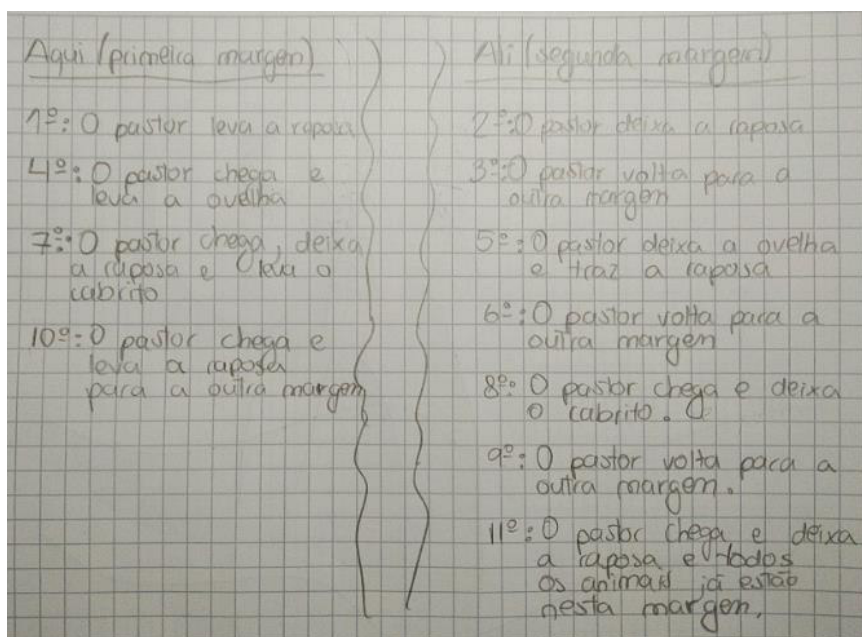 Aqui (primeira margem)
1º: O pastor leva a raposa
4º: O pastor chega e
leva a ovelha
7º: O pastor chega, deixa
a raposa e leva o
cabrito
10º: O pastor chega e
leva a raposa
para a outra margem
Ali (segunda margem)
2º: O pastor deixa a raposa
3º: O pastor volta para a
outra margem
5º: O pastor deixa a ovelha
e traz a raposa
6º: O pastor volta para a
outra margem
8º: O pastor chega e deixa
o cabrito.
9º: O pastor volta para a
outra margem.
11º: O pastor chega e deixa
a raposa e todos
os animais já estão
nesta margem.